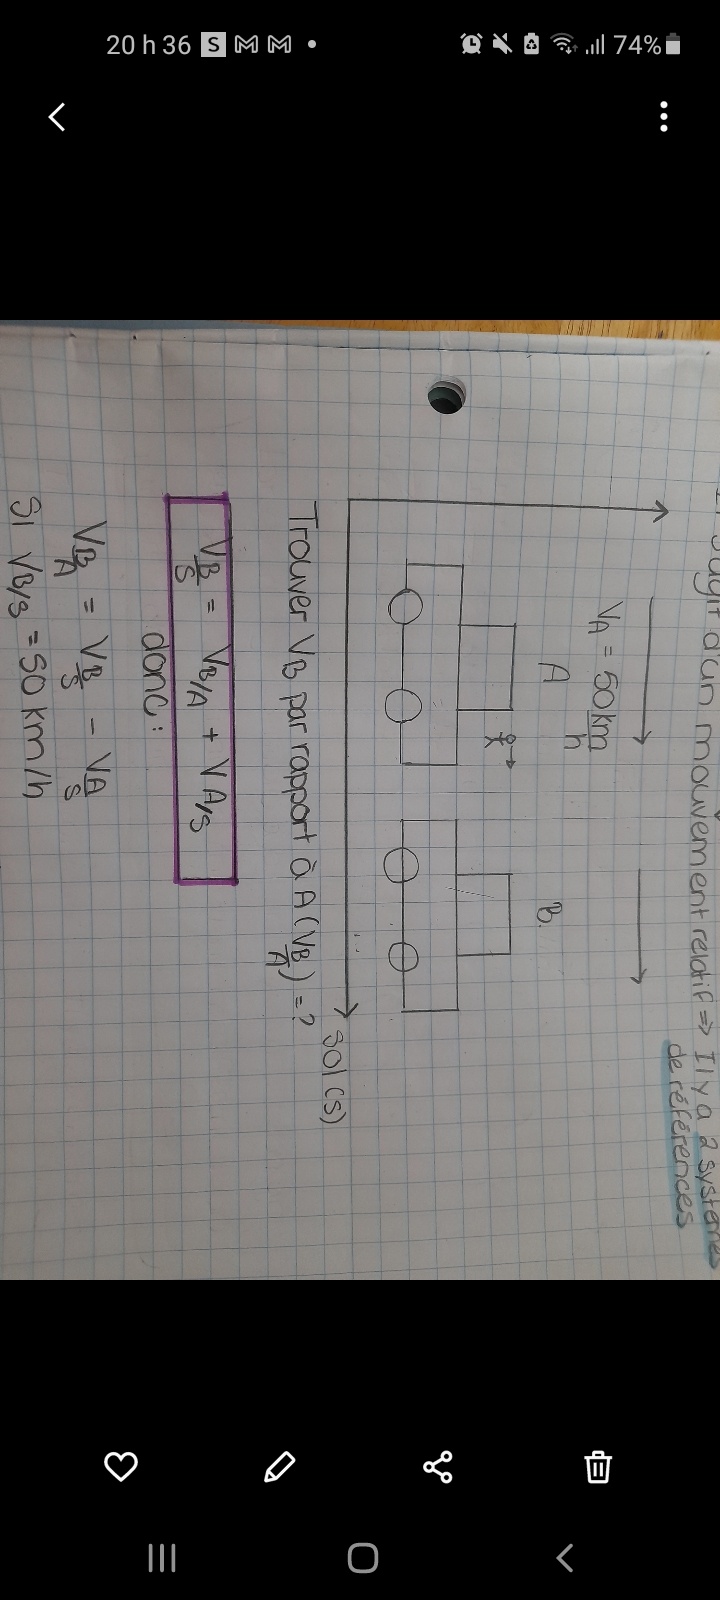 20 h 36 S M M • 74%
d'un mouvement relatif => Il y a 2 systèmes
de références
VA = 50 km/h
A
B.
sol (s)
Trouver VB par rapport à A (VB/A) = ?
VB/S = VB/A + VA/S
donc :
VB/A = VB/S - VA/S
Si VB/S = 50 km/h